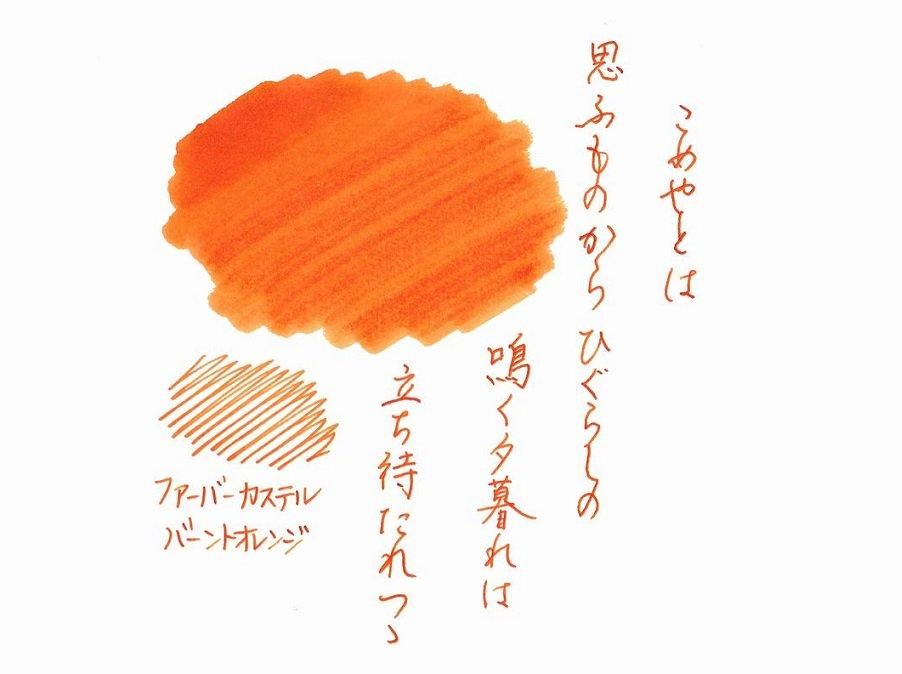 こめやとは
思ふものから ひぐらしの
鳴く夕暮れは
立ち待たれつゝ
ファーバーカステル
バーントオレンジ